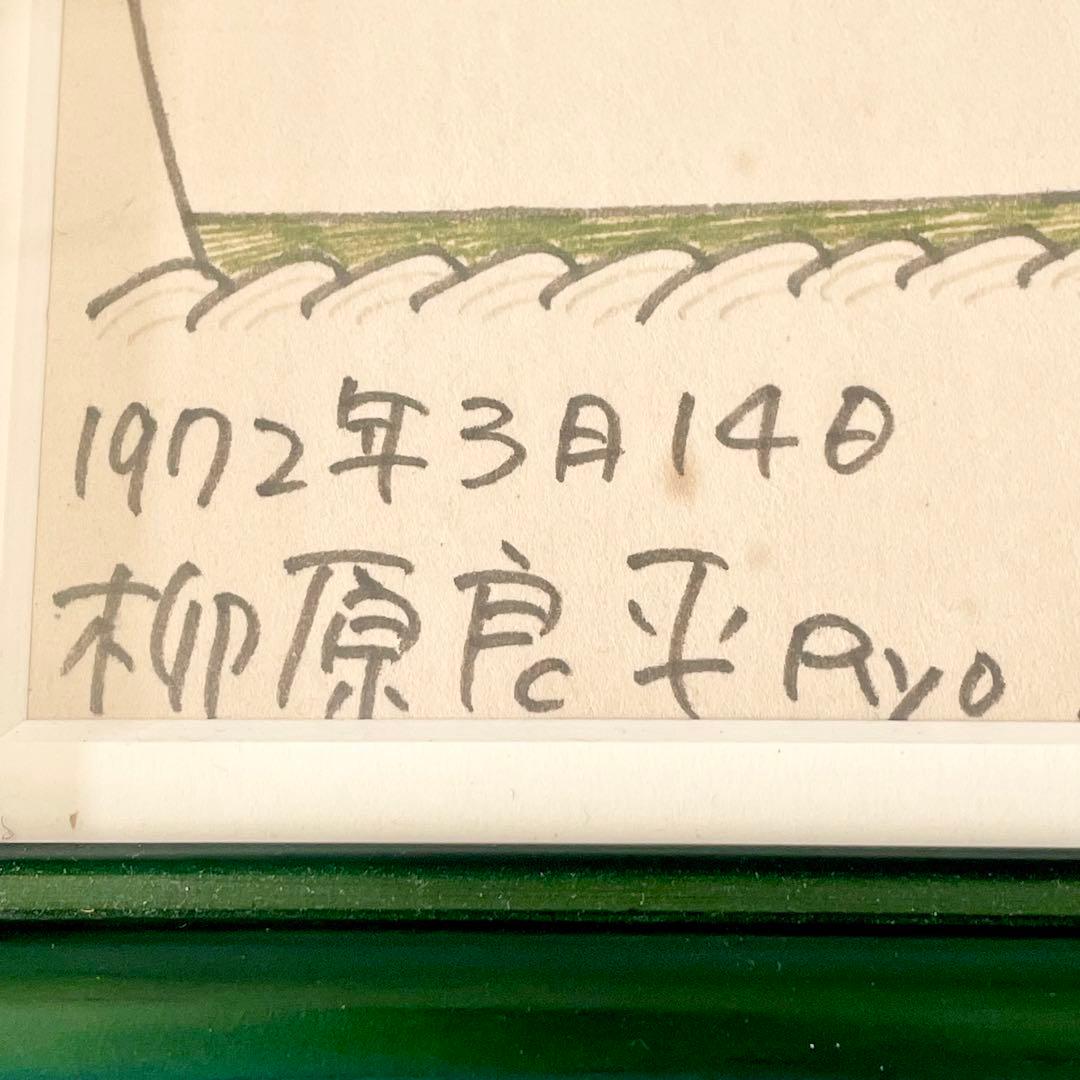 1972年3月14日
柳原良平 Ryo